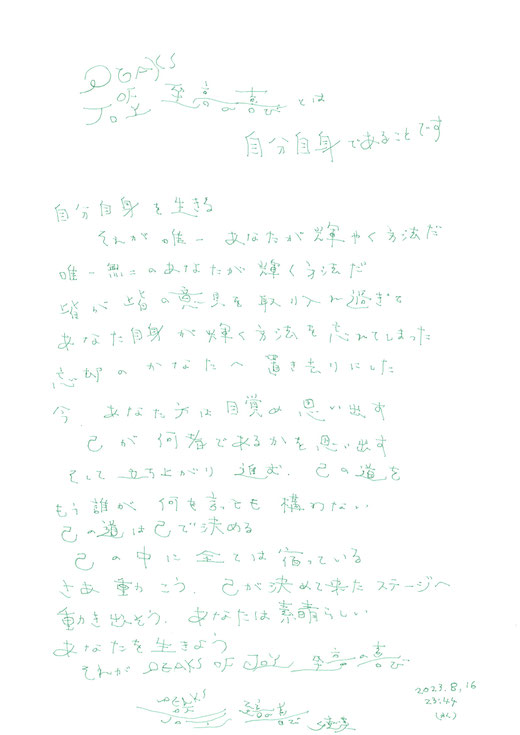 PEAKS
OF
JOY 至高の喜びとは
自分自身であることです
自分自身を生きる
それが唯一 あなたが輝やく方法だ
唯一無二のあなたが輝く方法だ
皆が皆の意見を取り入れ過ぎて
あなた自身が輝く方法を忘れてしまった
忘却のかなたへ置き去りにした
今、あなた方は目覚め思い出す
己が何者であるかを思い出す
そして立ち上がり進む、己の道を
もう誰が何を言っても構わない
己の道は己で決める
己の中に全ては宿っている
さあ動かこう、己が決めて来たステージへ
動き出そう、あなたは素晴らしい
あなたを生きよう
それが PEAKS OF JOY 至高の喜び
PEAKS
OF
JOY 至高の喜び
2023.8.16
23:44